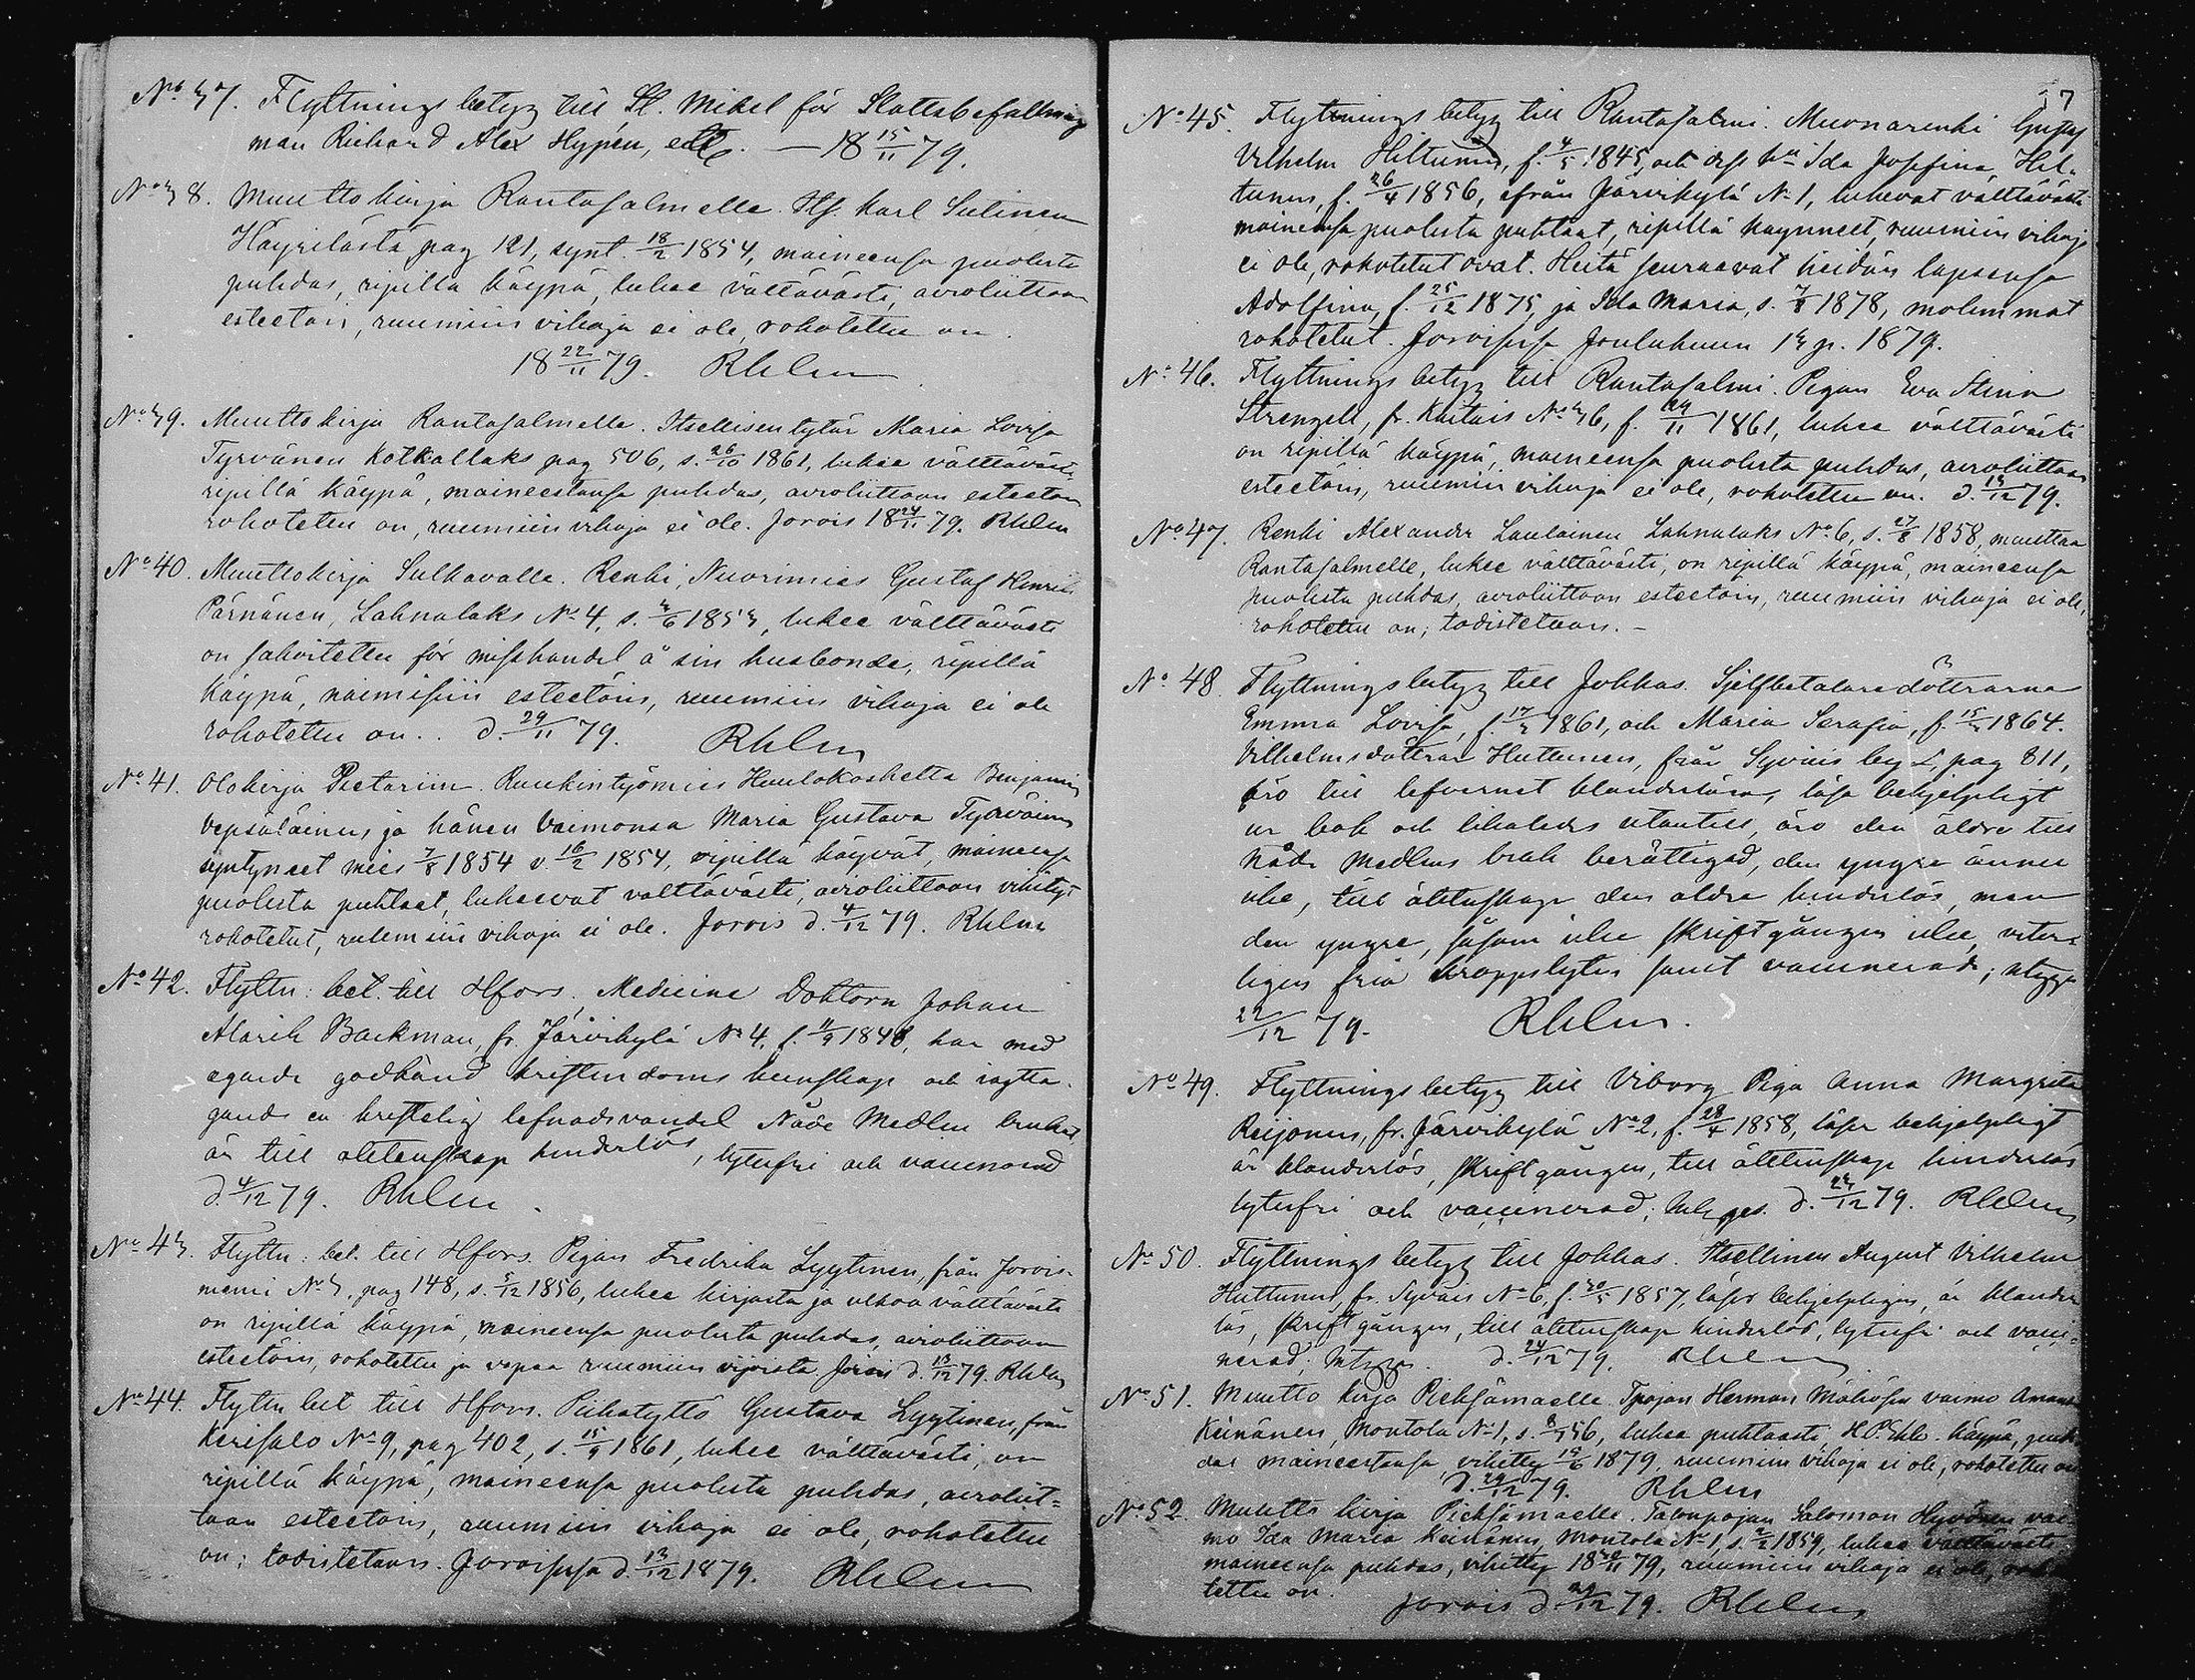 No 37. Flyttningsbetyg till St. Mikel för Slottsbefallning
man Richard Alex Hypén, etc. — 18 15/11 79.
No 38. Muuttokirja Rantasalmelle. Itf. Karl Sutinen
Häyrilästä pag 121, synt. 18/2 1854, maineensa puolesta
puhdas, ripillä käypä, lukee välttävästi, avioliittoon
esteetöin, ruumiin vikaja ei ole, rokotettu on.
18 22/11 79. Rhlm
No 39. Muuttokirja Rantasalmelle. Itsellisen tytär Maria Lovisa
Tyrvänen Kotkatlaks pag 506, s. 26/10 1861, lukee välttäväst:
ripillä käypä, maineestansa puhdas, avioliittoon esteetön
rokotettu on, ruumiin vikaja ei ole. Jorois 18 24/11 79. Rhlm
No 40. Muuttokirja Sulkavalle. Renki, Nuorimies Gustaf Henrik
Pärnänen, Lahnalaks No 4, s. 3/6 1853, lukee välttävästi
on sakoitettu för misshandel å sin husbonde, ripillä
käypä, naimisiin esteetöin, ruumiin vikaja ei ole
rokotettu on.. d. 29/11 79. Rhlm
No 41. Olokirja Pietariin. Ruukintyömies Huutokoskelta Benjamin
Vepsäläinen ja hänen Vaimonsa Maria Gustava Tyrväinen
syntyneet mies 7/8 1854 v. 16/2 1854, ripillä käyvät, maineensa
puolesta puhtaat, lukeevat välttävästi, avioliittoon vihityt
rokotetut, ruumiin vikaja ei ole. Jorois d. 4/12 79. Rhlm
No 42. Flyttn: bet. till Hfors. Medicine Doktorn Johan
Alarik Backman, fr. Järvikylä No 4, f. 11/9 1848, har med
egande godkänd kristendoms kunskap och iagtta-
gande en kristelig lefnadsvandel Nåde Medlen brukat,
är till äktenskap hinderlös, lytesfri och vaccinerad
d. 4/12 79. Rhlm
No 43. Flyttn: bet. till Hfors. Pigan Fredrika Lyytinen, från Jorois-
niemi No 3, pag 148, s. 5/12 1856, lukee kirjasta ja ulkoa välttävästi
on ripillä käypä, maineensa puolesta puhdas, avioliittoon
esteetöin, rokotettu ja vapaa ruumiin vijoista Jorois d. 13/12 79. Rhlm
No 44. Flyttn bet till Hfors. Piikatyttö Gustava Lyytinen, från
Kerisalo No 9, pag 402, s. 15/9 1861, lukee välttävästi, on
ripillä käypä, maineensa puolesta puhdas, avioliit-
toon esteetöin, ruumiin vikaja ei ole, rokotettu
on; todistetaan. Joroisissa d. 13/12 1879. Rhlm
57
No 45. Flyttnings betyg till Rantasalmi. Muonarenki Gustaf
Vilhelm Hiltunen, f. 4/5 1845, och dess hu Ida Josefina Hil-
tunen, f. 26/4 1856, ifrån Järvikylä No 1, lukevat välttävästi
maineensa puolesta puhtaat, ripillä käynneet, ruumiin vikaja
ei ole, rokotetut ovat. Heitä seuraavat heidän lapsensa
Adolfina, f. 25/12 1875, ja Ida Maria, s. 7/8 1878, molemmat
rokotetut. Joroisissa Joulukuun 13 p. 1879.
No 46. Flyttnings betyg till Rantasalmi. Pigan Eva Stina
Strengell, fr. Kaitais No 36, f. 24/11 1861, lukee välttävästi
on ripillä käypä, maineensa puolesta puhdas, avioliittoon
esteetöin, ruumiin vikaja ei ole, rokotettu on. d. 13/12 79.
No 47. Renki Alexander Laulainen Lahnalaks No 6, s. 27/2 1858, muuttaa
Rantasalmelle, lukee välttävästi, on ripillä käypä, maineensa
puolesta puhdas, avioliittoon esteetöin, ruumiin vikaja ei ole,
rokotettu on; todistetaan. —
No 48. Flyttningsbetyg till Jokkas. Sjelfbetalaredöttrarna
Emma Lovisa, f. 17/3 1861, och Maria Serafia, f. 15/3 1864.
Vilhelmsdöttrar Huttunen, från Syväis pag 811,
äro till lefvernet klanderlösa, läsa behjelpligt
ur bok och utantill, äro den äldre till
Nåde Medlens bruk berättigad, den yngre ännu
icke, till äktenskap den äldre hinderlös, men
den yngre, såsom icke skriftgången icke, veter-
ligen fria kroppslyten samt vaccinerade; utgges
22/12 79. Rhlm.
No 49. Flyttningsbetyg till Viborg Piga Anna Margreta
Reijonen, fr. Järvikylä No 2, f. 28/4 1858, läser behjelpligt
är klanderlös, skriftgången, till äktenskap hinderlös
lytesfri och vaccinerad; d. 23/12 79. Rhlm
No 50. Flyttnings betyg till Jokkas. Itsellinen August Vilhelm
Huttunen, fr. Syväis No 6, f. 30/5 1857, läser behjelpligen, är klander
lös, skriftgången, till äktenskap hinderlös, lytesfri och vacci-
nerad; d. 24/12 79. Rhlm
No 51. Muutto kirja Pieksämaelle. Tpojan Herman Mähösen vaimo Amanda
Keinänen, Montola No 1, s. 56, lukee puhtaasti, H.P. Ehto. käypä, puh-
das maineestansa vihitty 19/6 1879, ruumiin vikaja ei ole, rokotettu on
d. 29/12 79. Rhlm
No 52. Muutto kirja Pieksämaelle. Talonpojan Salomon Hyvösen vai-
mo Ida Maria Keinänen, Montola No 1, s. 2/2 1859, lukee välttävästi
maineensa puhdas, vihitty 18 30/11 79, ruumiin vikaja ei ole, roko-
tettu on. Jorois d. 29/12 79. Rhlm